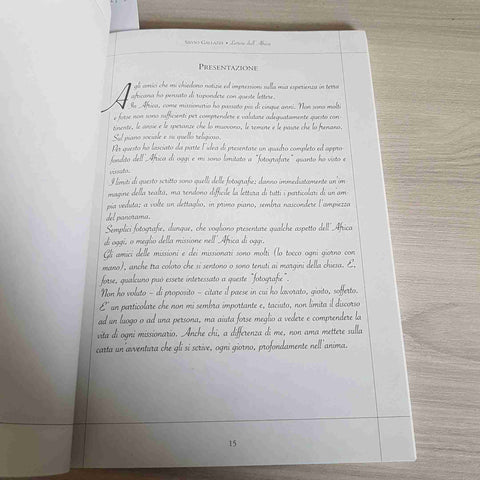 Silvio Gallazzi • Lettere dall'Africa
Presentazione
Agli amici che mi chiedono notizie ed impressioni sulla mia esperienza in terra
africana ho pensato di rispondere con queste lettere.
In Africa, come missionario ho passato più di cinque anni. Non sono molti
e forse non sono sufficienti per comprendere e valutare adeguatamente questo con-
tinente, le ansie e le speranze che lo muovono, le remore e le paure che lo frenano.
Sul piano sociale e su quello religioso.
Per questo ho lasciato da parte l'idea di presentare un quadro completo ed appro-
fondito dell'Africa di oggi e mi sono limitato a "fotografare" quanto ho visto e
vissuto.
I limiti di questo scritto sono quelli delle fotografie; danno immediatamente un im-
magine della realtà, ma rendono difficile la lettura di tutti i particolari di un am-
pia veduta; a volte un dettaglio, in primo piano, sembra nascondere l'ampiezza
del panorama.
Semplici fotografie, dunque, che vogliono presentare qualche aspetto dell'Africa
di oggi, o meglio della missione nell'Africa di oggi.
Gli amici delle missioni e dei missionari sono molti (lo tocco ogni giorno con
mano), anche tra coloro che si sentono o sono tenuti ai margini della chiesa. E,
forse, qualcuno può essere interessato a queste "fotografie".
Non ho voluto - di proposito - citare il paese in cui ho lavorato, gioito, sofferto.
E' un particolare che non mi sembra importante e, taciuto, non limita il discorso
ad un luogo o ad una persona, ma aiuta forse meglio a vedere e comprendere la
vita di ogni missionario. Anche chi, a differenza di me, non ama mettere sulla
carta un avventura che gli si scrive, ogni giorno, profondamente nell'anima.
15